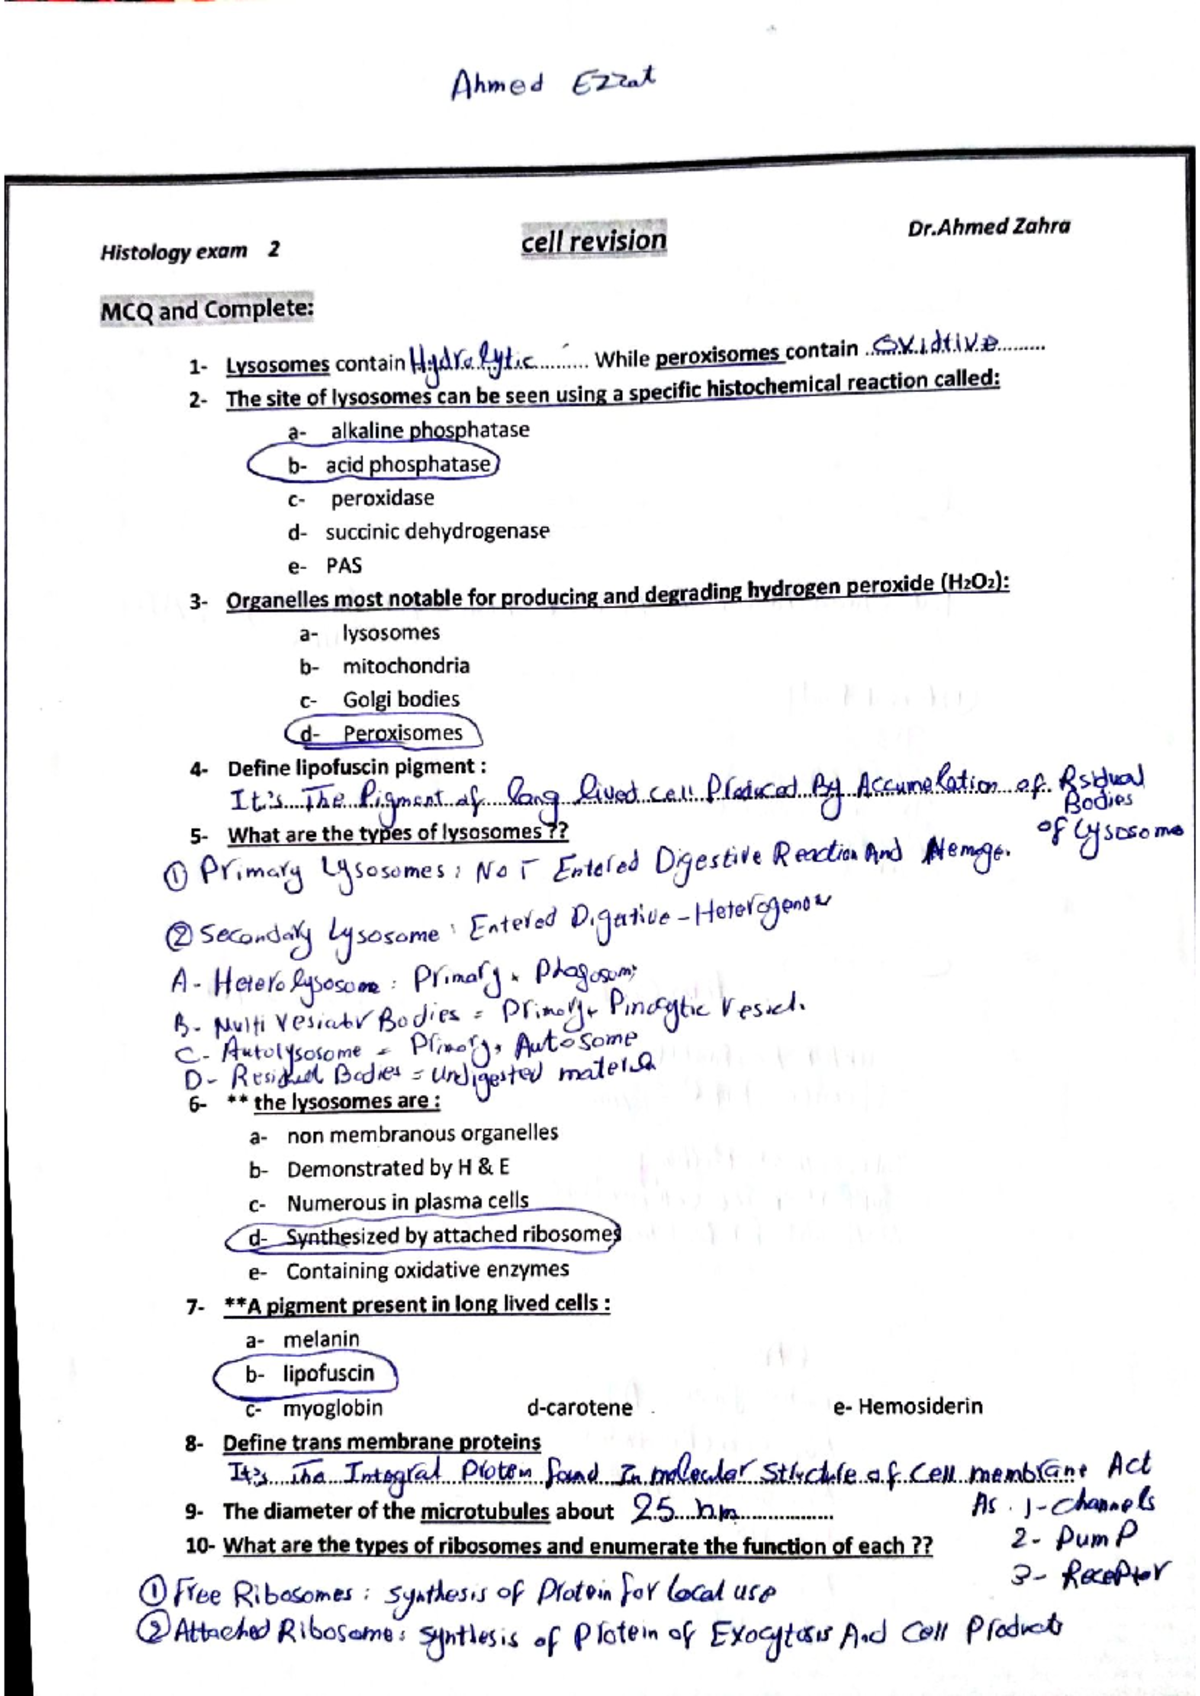 Ahmed Ezzat
Histology exam 2
cell revision
Dr.Ahmed Zahra
MCQ and Complete:
1- Lysosomes contain Hydrolytic ......... While peroxisomes contain ..Oxidtive.........
2- The site of lysosomes can be seen using a specific histochemical reaction called:
a- alkaline phosphatase
b- acid phosphatase
c- peroxidase
d- succinic dehydrogenase
e- PAS
3- Organelles most notable for producing and degrading hydrogen peroxide (H2O2):
a- lysosomes
b- mitochondria
c- Golgi bodies
d- Peroxisomes
4- Define lipofuscin pigment :
It's The Pigment of long lived cell Produced By Accumelation of Rsidual
Bodies
of Lysosome
5- What are the types of lysosomes ??
① Primary Lysosomes : Not Entered Digestive Reaction And Hemoge.
② Secondary Lysosome : Entered Digetive - Heterogenou
A- Heterolysosome : Primary + Phagosom
B- Multi Vesicular Bodies = Primary + Pinocytic Vesicl.
C- Autolysosome = Primary + Autosome
D- Residual Bodies = Undigested material
6- ** the lysosomes are :
a- non membranous organelles
b- Demonstrated by H & E
c- Numerous in plasma cells
d- Synthesized by attached ribosomes
e- Containing oxidative enzymes
7- **A pigment present in long lived cells :
a- melanin
b- lipofuscin
c- myoglobin d-carotene e- Hemosiderin
8- Define trans membrane proteins
It's The Integral Protein found In molecular Structure of Cell membrane Act
As . 1- Channels
2- Pump
3- Receptor
9- The diameter of the microtubules about 25 nm..................
10- What are the types of ribosomes and enumerate the function of each ??
① Free Ribosomes : Synthesis of Protein for Local use
② Attached Ribosome : Synthesis of Protein of Exocytosis And Cell Products